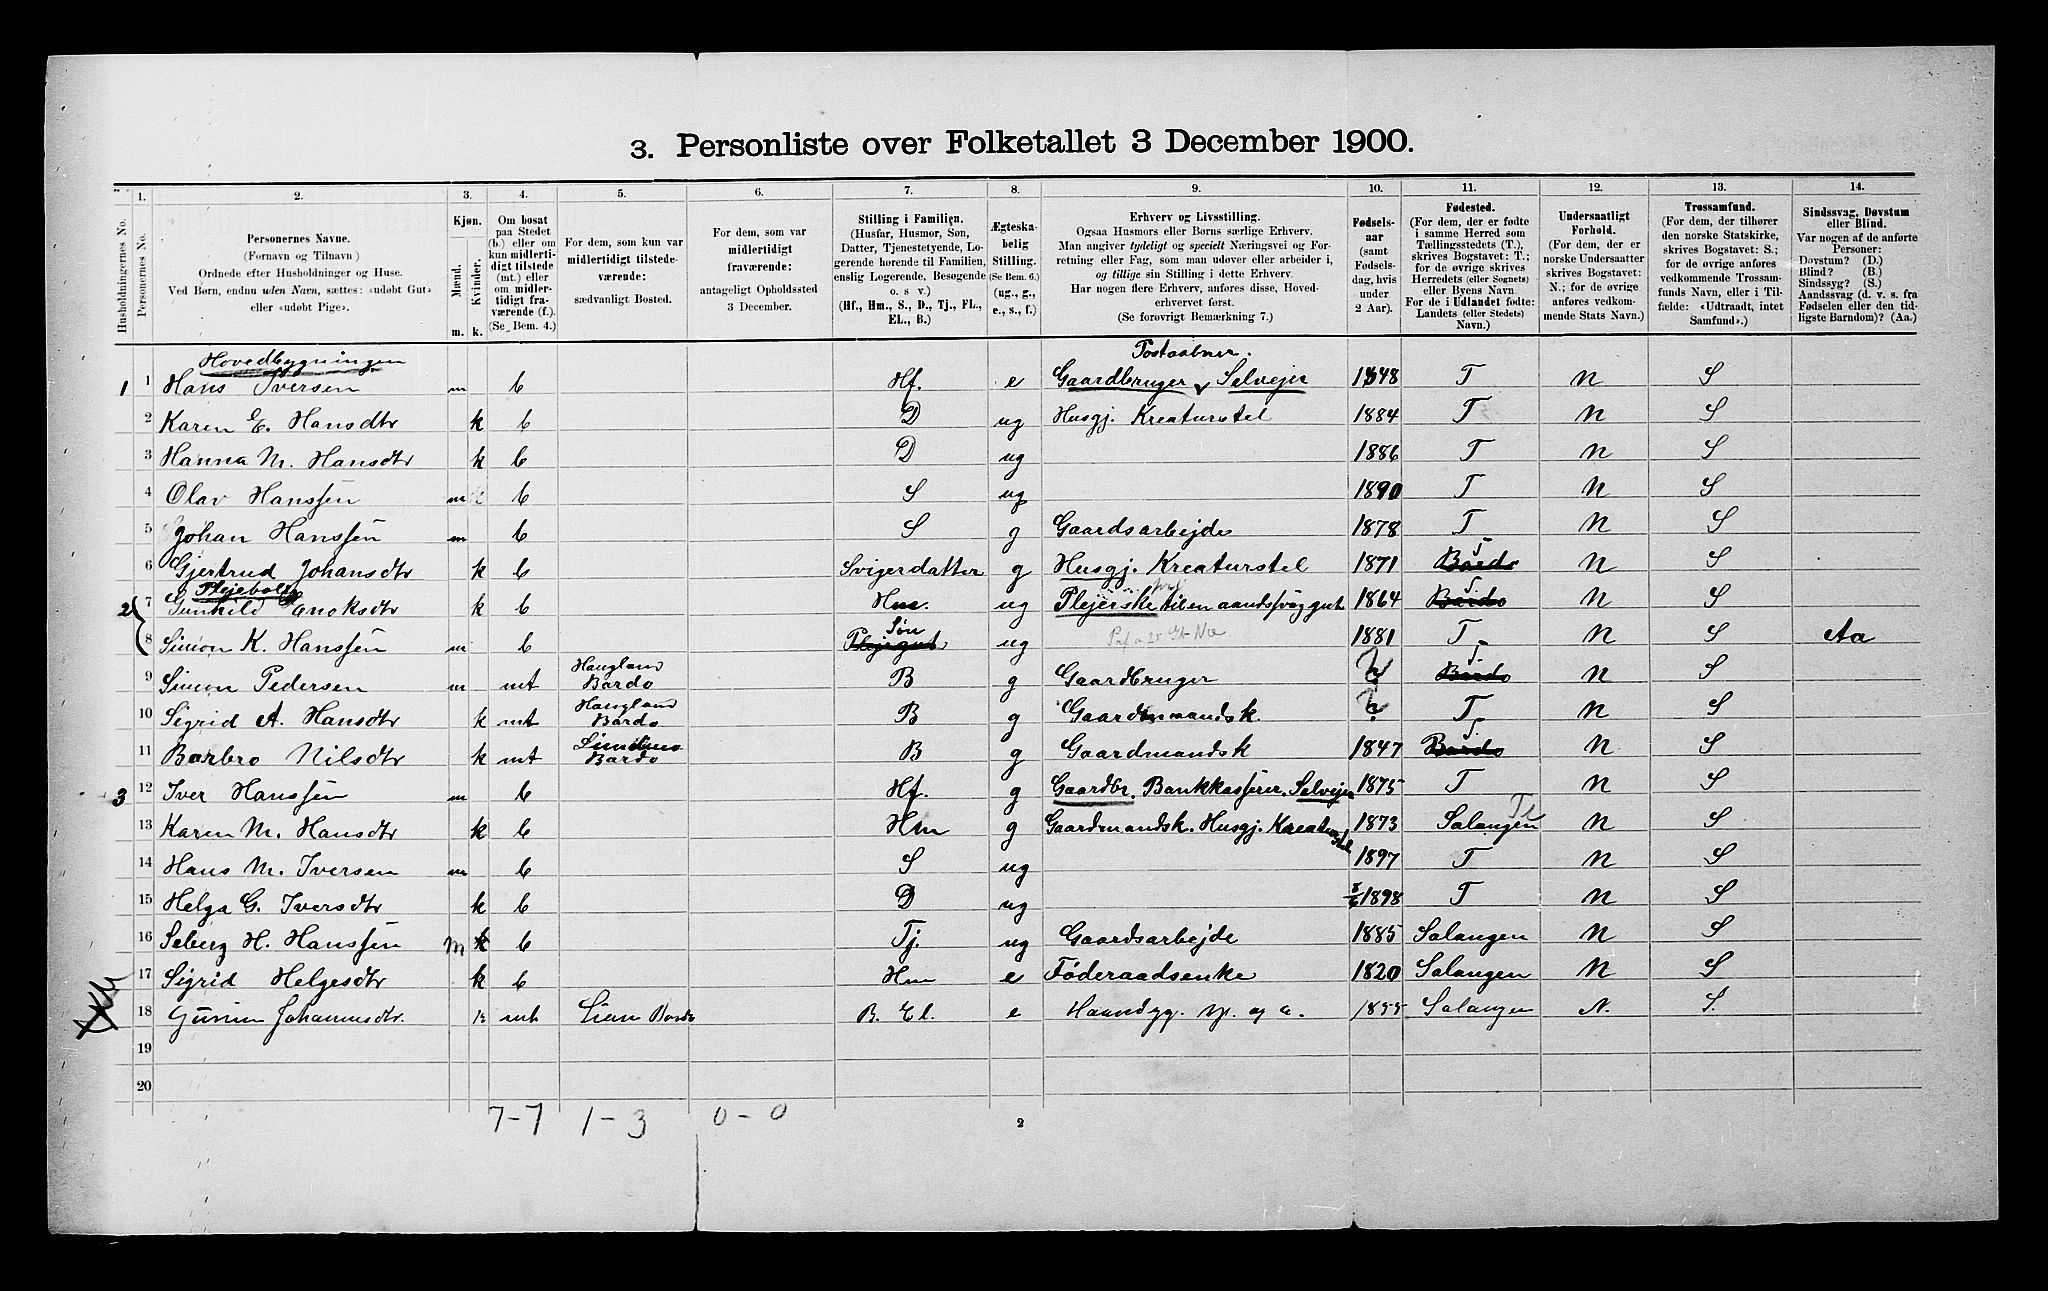 3. Personliste over Folketallet 3 December 1900.
1. 2. 3. 4. 5. 6. 7. 8. 9. 10. 11. 12. 13. 14.
Husholdningernes No.
Personernes No.
Personernes Navne.
(Fornavn og Tilnavn)
Ordnede efter Husholdninger og Huse.
Ved Børn, endnu uden Navn, sættes: «udøbt Gut»
eller «udøbt Pige».
Kjøn.
Mænd.
Kvinder.
m. k.
Om bosat
paa Stedet
(b.) eller om
kun midlerti-
digt tilstede
(mt.) eller
om midler-
tidigt fra-
værende (f.).
(Se Bem. 4.)
For dem, som kun var
midlertidigt tilstede-
værende:
sædvanligt Bosted.
For dem, som var
midlertidigt
fraværende:
antageligt Opholdssted
3 December.
Stilling i Familien.
(Husfar, Husmor, Søn,
Datter, Tjenestetyende, Lo-
gerende hørende til Familien,
enslig Logerende, Besøgende
o. s v.)
(Hf., Hm., S., D., Tj., FL.,
EL., B.)
Ægteska-
belig
Stilling.
(Se Bem. 6.)
(ug., g.,
e., s., f.)
Erhverv og Livsstilling.
Ogsaa Husmors eller Børns særlige Erhverv.
Man angiver tydeligt og specielt Næringsvei og For-
retning eller Fag, som man udøver eller arbeider i,
og tillige sin Stilling i dette Erhverv.
Har nogen flere Erhverv, anføres disse, Hoved-
erhvervet først.
(Se forøvrigt Bemærkning 7.)
Fødsels-
aar
(samt
Fødsels-
dag, hvis
under
2 Aar).
Fødested.
(For dem, der er fødte
i samme Herred som
Tællingsstedets (T.),
skrives Bogstavet: T.;
for de øvrige skrives
Herredets (eller Sognets)
eller Byens Navn
For de i Udlandet fødte:
Landets (eller Stedets)
Navn.)
Undersaatligt
Forhold.
(For dem, der er
norske Undersaatter
skrives Bogstavet:
N.; for de øvrige
anføres vedkom-
mende Stats Navn.)
Trossamfund.
(For dem, der tilhører
den norske Statskirke,
skrives Bogstavet: S.;
for de øvrige anføres
vedkommende Trossam-
funds Navn, eller i Til-
fælde: «Udtraadt, intet
Samfund».)
Sindssvag, Døvstum
eller Blind.
Var nogen af de anførte
Personer:
Døvstum? (D.)
Blind? (B.)
Sindssyg? (S.)
Aandssvag (d. v. s. fra
Fødselen eller den tid-
ligste Barndom)? (Aa.)
Hovedbygningen Postaabner.
1 1 Hans Iversen m b Hf. e Gaardbruger Selveier 1848 T N S
2 Karen E. Hansdtr k b D ug Husgj. Kreaturstel 1884 T N S
3 Hanna M. Hansdtr k b D ug 1886 T N S
4 Olav Hanssen m b S ug 1890 T N S
5 Johan Hanssen m b S g Gaardsarbejde 1878 T N S
6 Gjertrud Johansdtr k b Svigerdatter g Husgj. Kreaturstel 1871 Bardo T N S
2 7 Gunhild Enoksdtr k b Hm. ug Plejerske til en aandssvag gut 1864 Bardo T. N S
8 Simon K. Hanssen m b Plejegut Søn ug 1881 T N S Aa
9 Simon Pedersen m mt Haugland Bardo B g Gaardbruger ? Bardo T N S
10 Sigrid A. Hansdtr k mt Haugland Bardo B g Gaardmandsk. ? T N S
11 Barbro Nilsdtr k mt Bardo B g Gaardmandsk 1847 Bardo T. N S
3 12 Iver Hanssen m b Hf. g Gaardbr. Bankkasserer. Selvejer 1875 T N S
13 Karen M. Hansdtr k b Hm g Gaardmandsk. Husgj. Kreaturstel 1873 Salangen N S
14 Hans M. Iversen m b S ug 1897 T N S
15 Helga G. Iversdtr k b D ug 1898 T N S
16 H. Hanssen m k b Tj. ug Gaardsarbejde 1885 Salangen N S
17 Sigrid Helgesdtr k b Hm e Føderaadsenke 1820 Salangen N S
18 Johannesdtr. k mt Bardo B. El. e 1855 Salangen N. S.
19
20
7-7 1-3 0-0
2